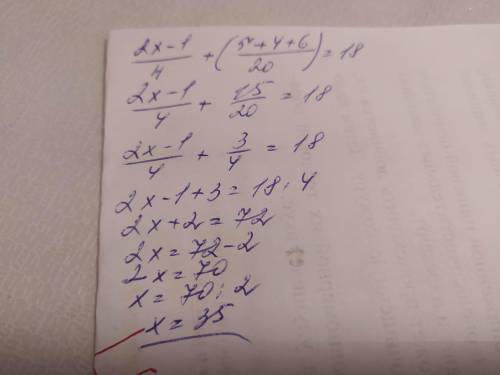 (2x-1)/4 + ((5+4+6)/20) = 18
(2x-1)/4 + 15/20 = 18
(2x-1)/4 + 3/4 = 18
2x-1+3=18·4
2x+2=72
2x=72-2
2x=70
x=70:2
x=35